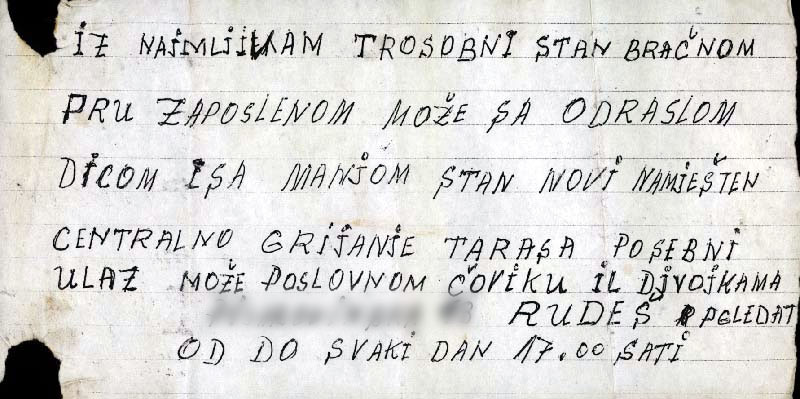 IZ NAJMLJIVKAM TROSOBNI STAN BRAČNOM
PRU ZAPOSLENOM MOŽE SA ODRASLOM
DICOM ISA MANJOM STAN NOVI NAMJEŠTEN
CENTRALNO GRIJANJE TARASA POSEBNI
ULAZ MOŽE POSLOVNOM ČOVIKU IL DJVOJKAMA
RUDEŠ PGLEDAT
OD DO SVAKI DAN 17.00 SATI